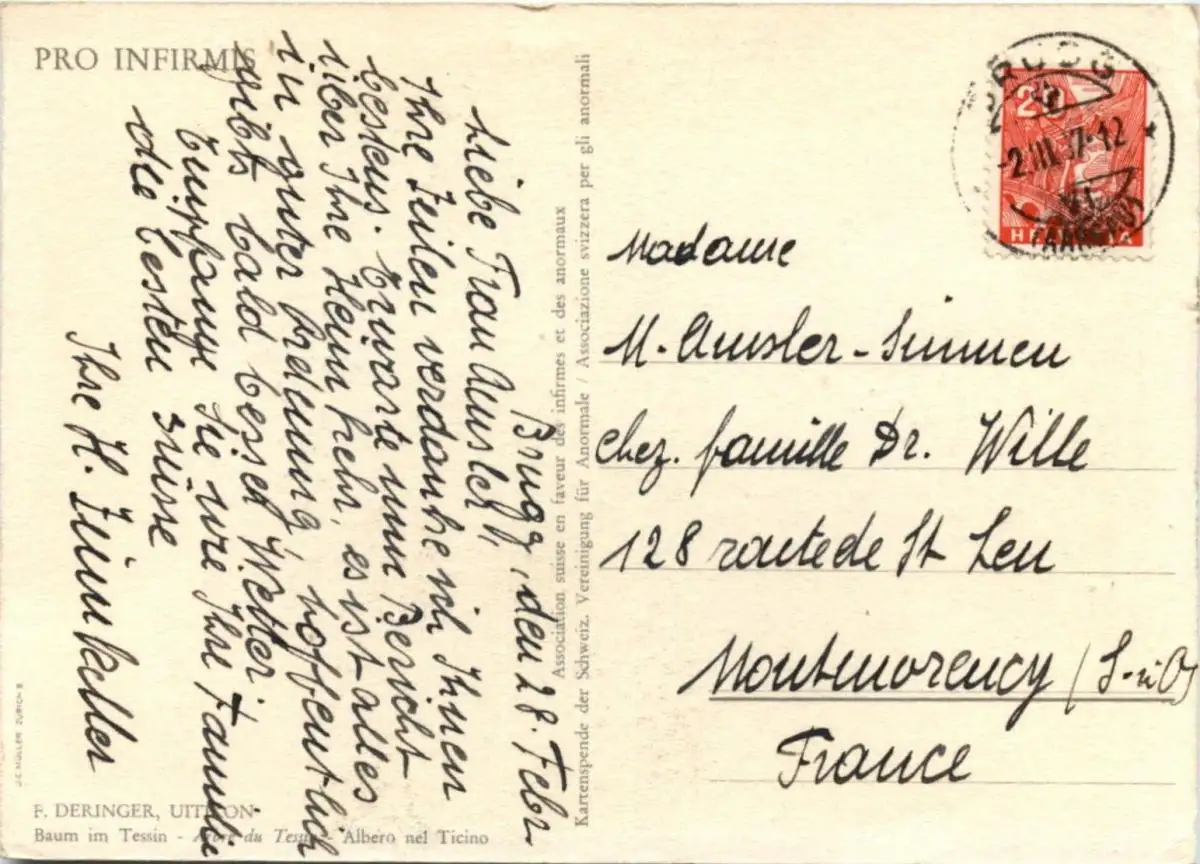 PRO INFIRMIS
Brugg, den 28. Febr.
Liebe Frau Amsler,
Ihre Zeilen verdanke ich Ihnen
bestens. Erwarte nun Bericht
über Ihre Heimkehr, es ist alles
in guter Ordnung, hoffentlich
gibts bald besser Wetter.
Empfange Sie wie Ihre Familie
die besten Grüsse
Ihre H. Zimmerli
Association suisse en faveur des infirmes et des anormaux
Kartenspende der Schweiz. Vereinigung für Anormale / Associazione svizzera per gli anormali
20
HELVETIA
BRUGG
-2.III.37-12
(AARGAU)
Madame
M. Amsler-Simmen
chez. famille Dr. Wille
128 route de St Leu
Montmorency (S-et-O)
France
J.C. MÜLLER ZÜRICH 8
F. DERINGER, UITIKON
Baum im Tessin - Arbre du Tessin - Albero nel Ticino